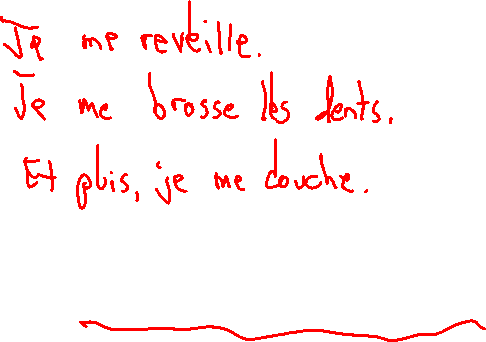 Je me reveille.
Je me brosse les dents.
Et puis, je me douche.